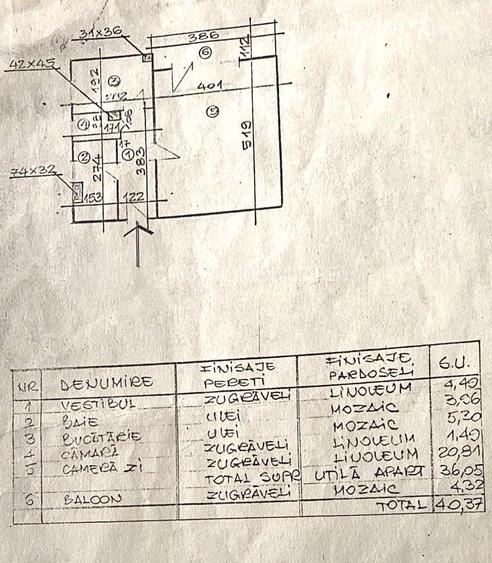 31x36
386
6
112
42x45
192
3
401
5
4
171
519
2
1
274
383
17
74x32
153
122
NR. DENUMIRE FINISAJE PERETI FINISAJE PARDOSELI S.U.
1 VESTIBUL ZUGRĂVELI LINOLEUM 4,40
2 BAIE ULEI MOZAIC
3 BUCĂTĂRIE ULEI MOZAIC 5,20
4 CĂMARĂ ZUGRĂVELI LINOLEUM 1,40
5 CAMERĂ ZI ZUGRĂVELI LINOLEUM 20,81
TOTAL SUPR UTILĂ APART 36,05
6 BALCON ZUGRĂVELI MOZAIC 4,32
TOTAL 40,37